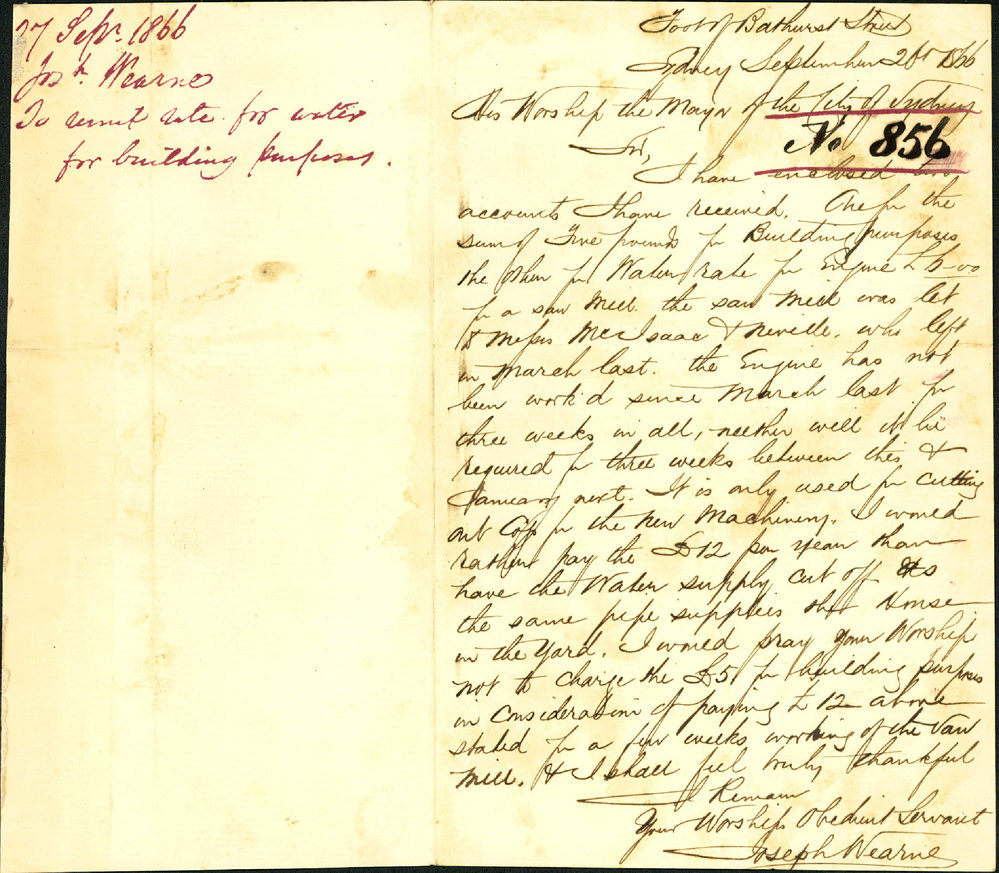 27 Sepr. 1866
Josh. Wearne
To remit rate for water
for building purposes.
Foot of Bathurst Street
Sydney September 26t 1866
His Worship the Mayor of the City of Sydney
No 856
Sir,
I have enclosed two
accounts I have received. One for the
sum of Five pounds for Building purposes
the other for Water rate for Engine £
for a saw Mill. the saw Mill was let
to Messrs McIsaac & Neville. who left
in March last. the Engine has not
been work'd since March last for
three weeks in all, neither will it be
required for three weeks between this &
January next. It is only used for cutting
out for the new Machinery. I would
rather pay the £12 per year than
have the Water supply cut off as
the same pipe supplies the House
in the Yard. I would pray your Worship
not to charge the £5 for building purposes
in Consideration of paying £12 above
stated for a few weeks working of the Saw
Mill. & I shall feel truly thankful
I Remain
Your Worships Obedient Servant
Joseph Wearne